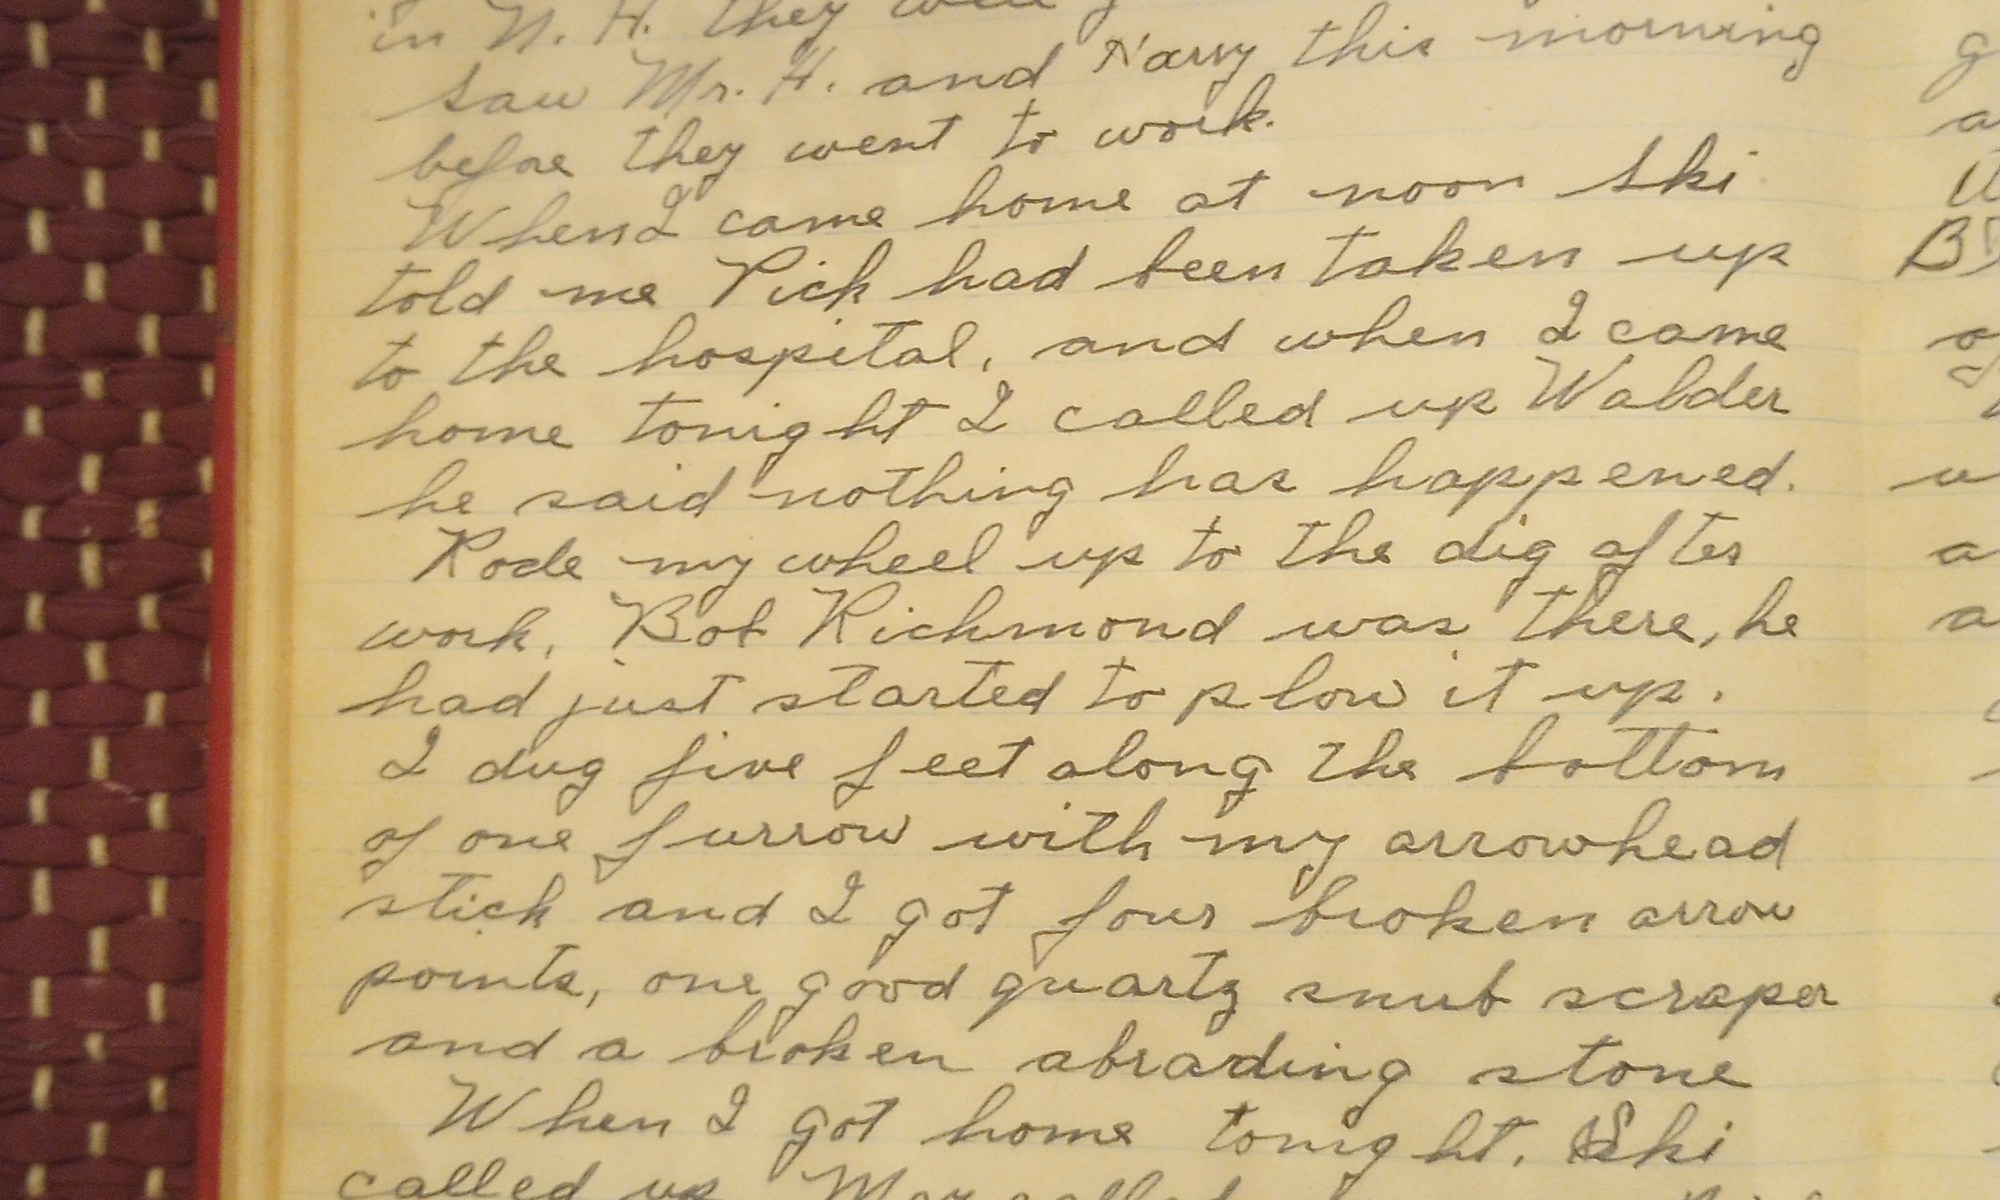 in N. H. they
saw Mr. H. and Navy this morning
before they went to work.
When I came home at noon Ski
told me Pick had been taken up
to the hospital, and when I came
home tonight I called up Walder
he said nothing has happened.
Rode my wheel up to the dig after
work. Bob Richmond was there, he
had just started to plow it up.
I dug five feet along the bottom
of one furrow with my arrowhead
stick and I got four broken arrow
points, one good quartz snub scraper
and a broken abrading stone
When I got home tonight. Ski
called up